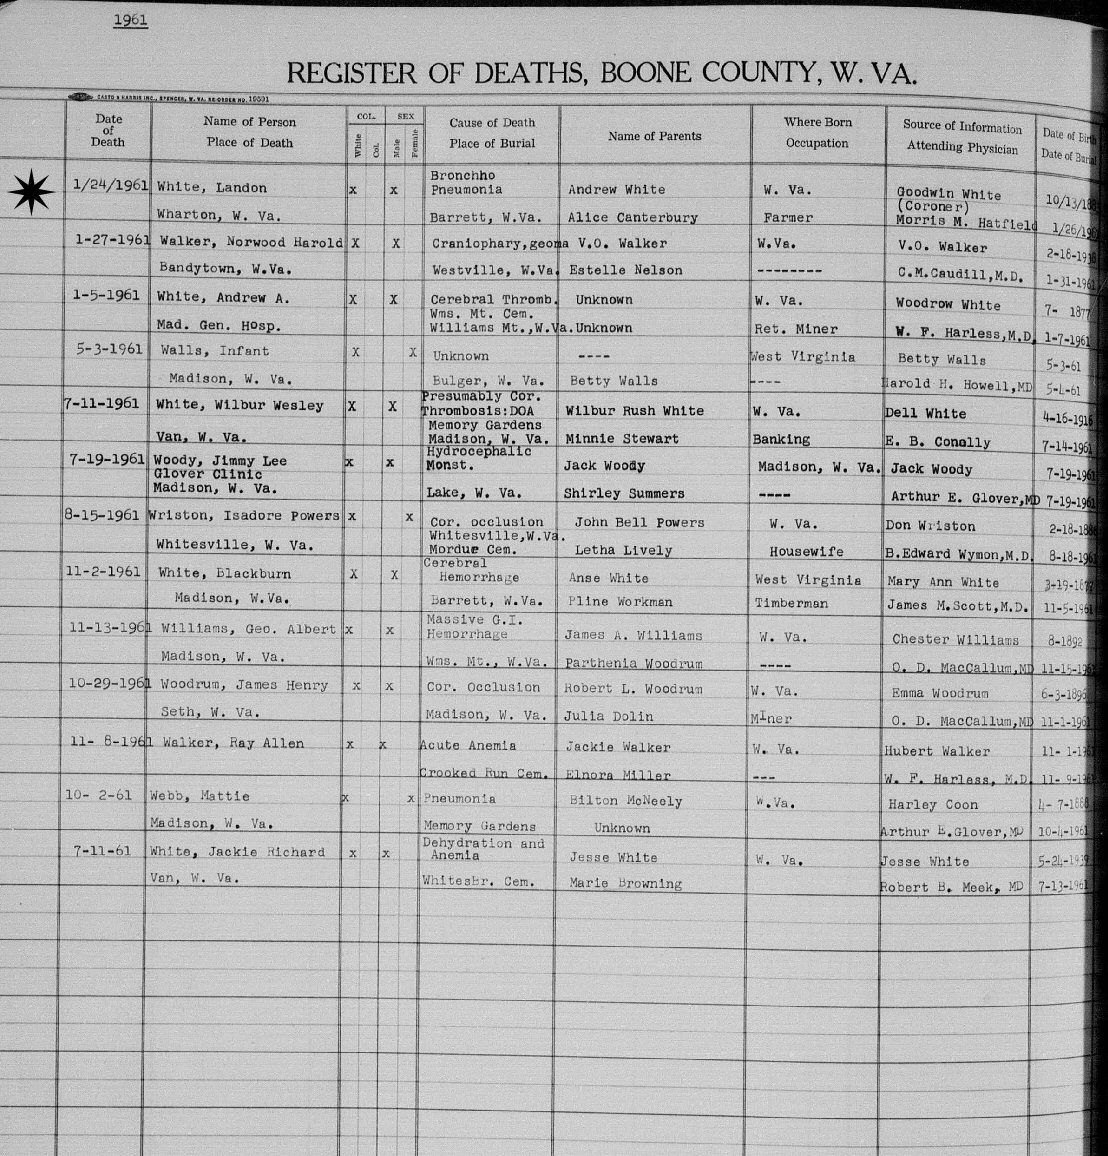 1961
REGISTER OF DEATHS, BOONE COUNTY, W. VA.
CASTO & HARRIS INC., SPENCER, W. VA. RE-ORDER NO. 10691
Date of Death Name of Person Place of Death COL. White Col. SEX Male Female Cause of Death Place of Burial Name of Parents Where Born Occupation Source of Information Attending Physician Date of Birth Date of Burial
Bronchho
1/24/1961 White, Landon x x Pneumonia Andrew White W. Va. Goodwin White 10/13/18
(Coroner)
Wharton, W. Va. Barrett, W.Va. Alice Canterbury Farmer Morris M. Hatfield 1/26/196
1-27-1961 Walker, Norwood Harold X X Craniophary,geoma V.O. Walker W.Va. V.O. Walker 2-18-19
Bandytown, W.Va. Westville, W.Va. Estelle Nelson -------- C.M.Caudill,M.D. 1-31-1961
1-5-1961 White, Andrew A. X X Cerebral Thromb. Unknown W. Va. Woodrow White 7- 1877
Wms. Mt. Cem.
Mad. Gen. Hosp. Williams Mt.,W.Va. Unknown Ret. Miner W. F. Harless,M.D. 1-7-1961
5-3-1961 Walls, Infant X X Unknown ---- West Virginia Betty Walls 5-3-61
Madison, W. Va. Bulger, W. Va. Betty Walls ---- Harold H. Howell,MD 5-4-61
Presumably Cor.
7-11-1961 White, Wilbur Wesley X X Thrombosis:DOA Wilbur Rush White W. Va. Dell White 4-16-1916
Memory Gardens
Van, W. Va. Madison, W. Va. Minnie Stewart Banking E. B. Conolly 7-14-1961
Hydrocephalic
7-19-1961 Woody, Jimmy Lee x x Monst. Jack Woody Madison, W. Va. Jack Woody 7-19-1961
Glover Clinic
Madison, W. Va. Lake, W. Va. Shirley Summers ---- Arthur E. Glover,MD 7-19-1961
8-15-1961 Wriston, Isadore Powers x x Cor. occlusion John Bell Powers W. Va. Don Wriston 2-18-18
Whitesville,W.Va.
Whitesville, W. Va. Mordue Cem. Letha Lively Housewife B.Edward Wymon,M.D. 8-18-1961
Cerebral
11-2-1961 White, Blackburn X X Hemorrhage Anse White West Virginia Mary Ann White 3-19-1877
Madison, W.Va. Barrett, W.Va. Pline Workman Timberman James M.Scott,M.D. 11-5-1961
Massive G.I.
11-13-1961 Williams, Geo. Albert x x Hemorrhage James A. Williams W. Va. Chester Williams 8-1892
Madison, W. Va. Wms. Mt., W.Va. Parthenia Woodrum ---- O. D. MacCallum,MD 11-15-1961
10-29-1961 Woodrum, James Henry x x Cor. Occlusion Robert L. Woodrum W. Va. Emma Woodrum 6-3-1896
Seth, W. Va. Madison, W. Va. Julia Dolin Miner O. D. MacCallum,MD 11-1-1961
11- 8-1961 Walker, Ray Allen x x Acute Anemia Jackie Walker W. Va. Hubert Walker 11- 1-1961
Crooked Run Cem. Elnora Miller --- W. F. Harless, M.D. 11- 9-1961
10- 2-61 Webb, Mattie x x Pneumonia Bilton McNeely W.Va. Harley Coon 4- 7-1888
Madison, W. Va. Memory Gardens Unknown Arthur E.Glover,MD 10-4-1961
Dehydration and
7-11-61 White, Jackie Richard x x Anemia Jesse White W. Va. Jesse White 5-24-1939
Van, W. Va. Whitesbr. Cem. Marie Browning Robert B. Meek, MD 7-13-1961